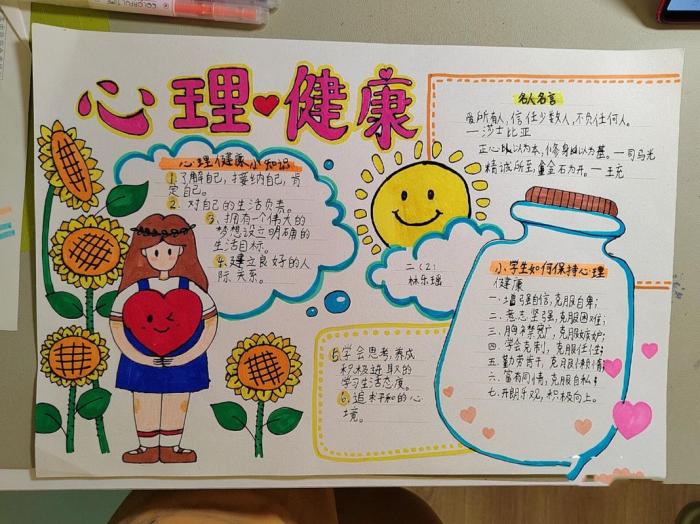 心理健康
心理健康小知识
1.了解自己，接纳自己，肯
定自己。
2.对自己的生活负责。
3.拥有一个伟大的
梦想设立明确的
生活目标。
4.建立良好的人
际关系。
二（2）
林乐瑶
5.学会思考，养成
积极进取的
学习生活态度。
6.追求平和的心
境。
名人名言
爱所有人，信任少数人，不负任何人。
—莎士比亚
正心以为本，修身以为基。—司马光
精诚所至，金石为开。—王充
小学生如何保持心理
健康
一.增强自信，克服自卑；
二.意志坚强，克服困难；
三.胸襟宽广，克服嫉妒；
四.学会克制，克服任性；
五.勤劳苦干，克服
六.富有同情，克服自私
七.开朗乐观，积极向上。